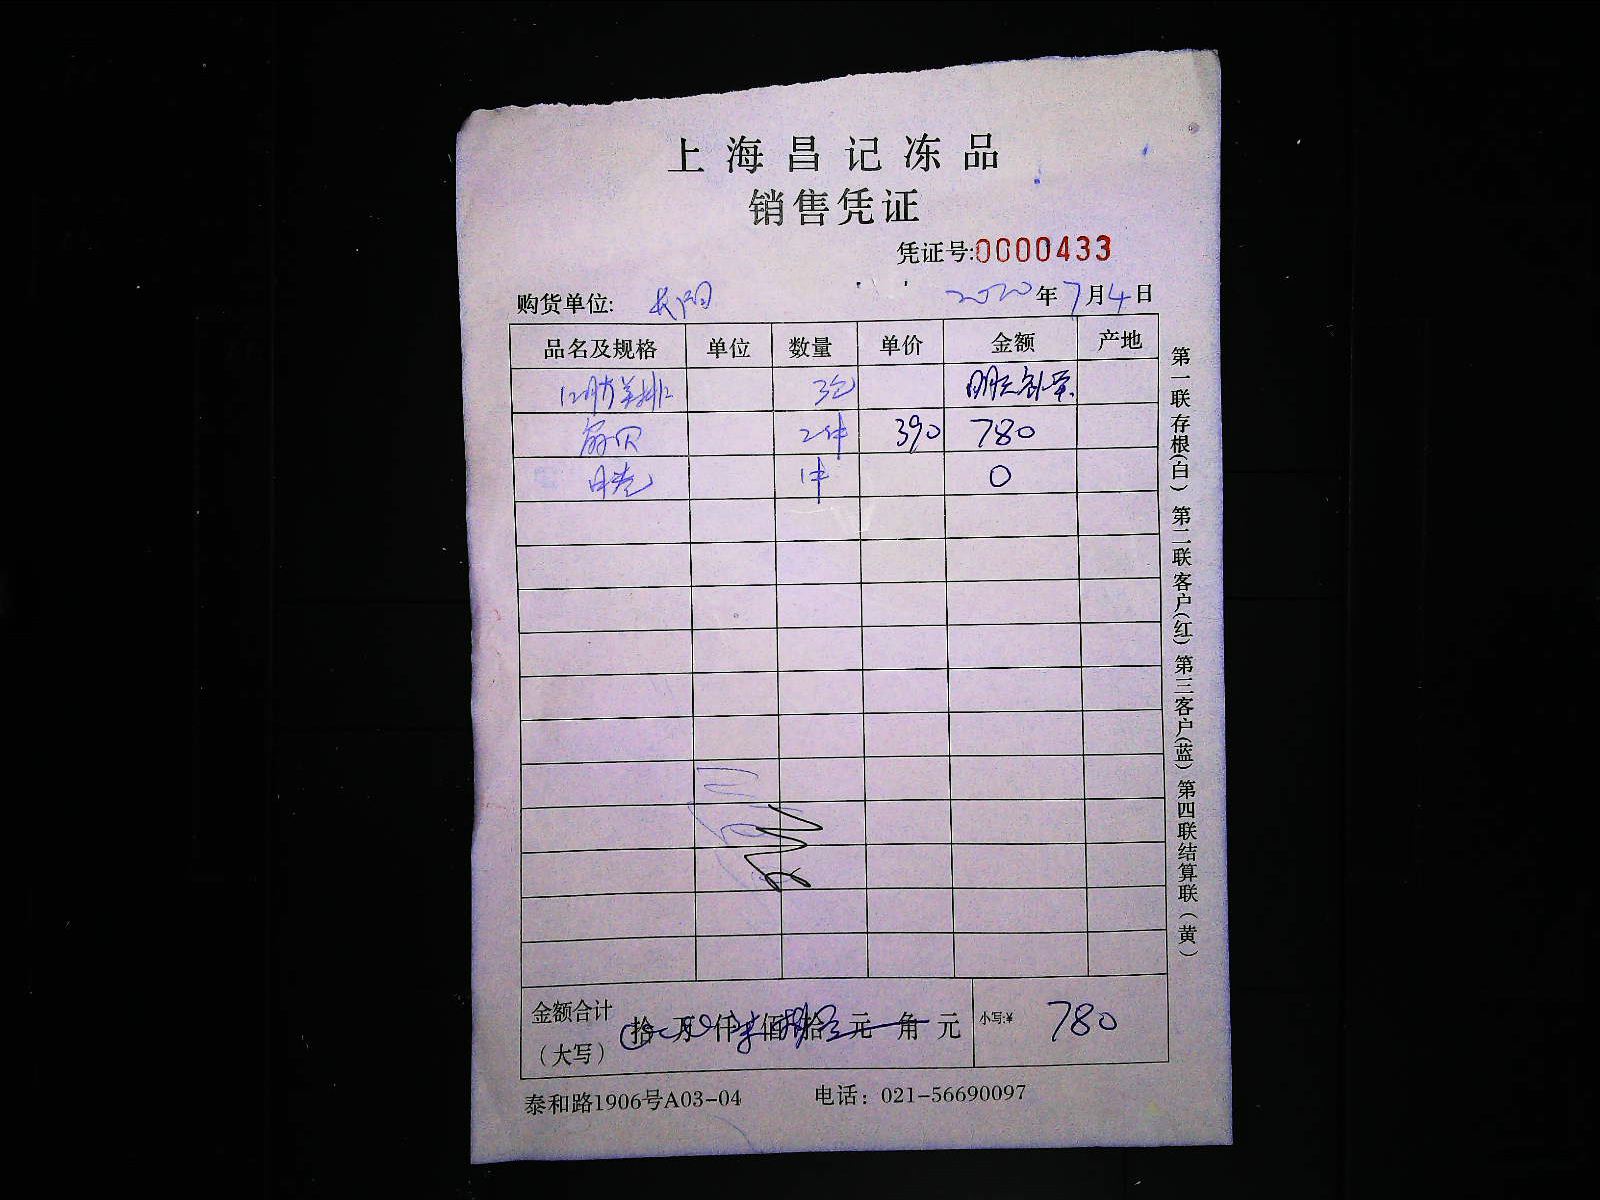 上海昌记冻品
销售凭证
凭证号:0000433
购货单位: 长阳 2020年7月4日
品名及规格 单位 数量 单价 金额 产地
12肋羊排 3包
扇贝 2件 390 780
1件 0
金额合计 拾 万 仟 佰 拾 元 角 元 小写:¥ 780
(大写)
泰和路1906号A03-04 电话：021-56690097
第一联存根(白) 第二联客户(红) 第三客户(蓝) 第四联结算联(黄)